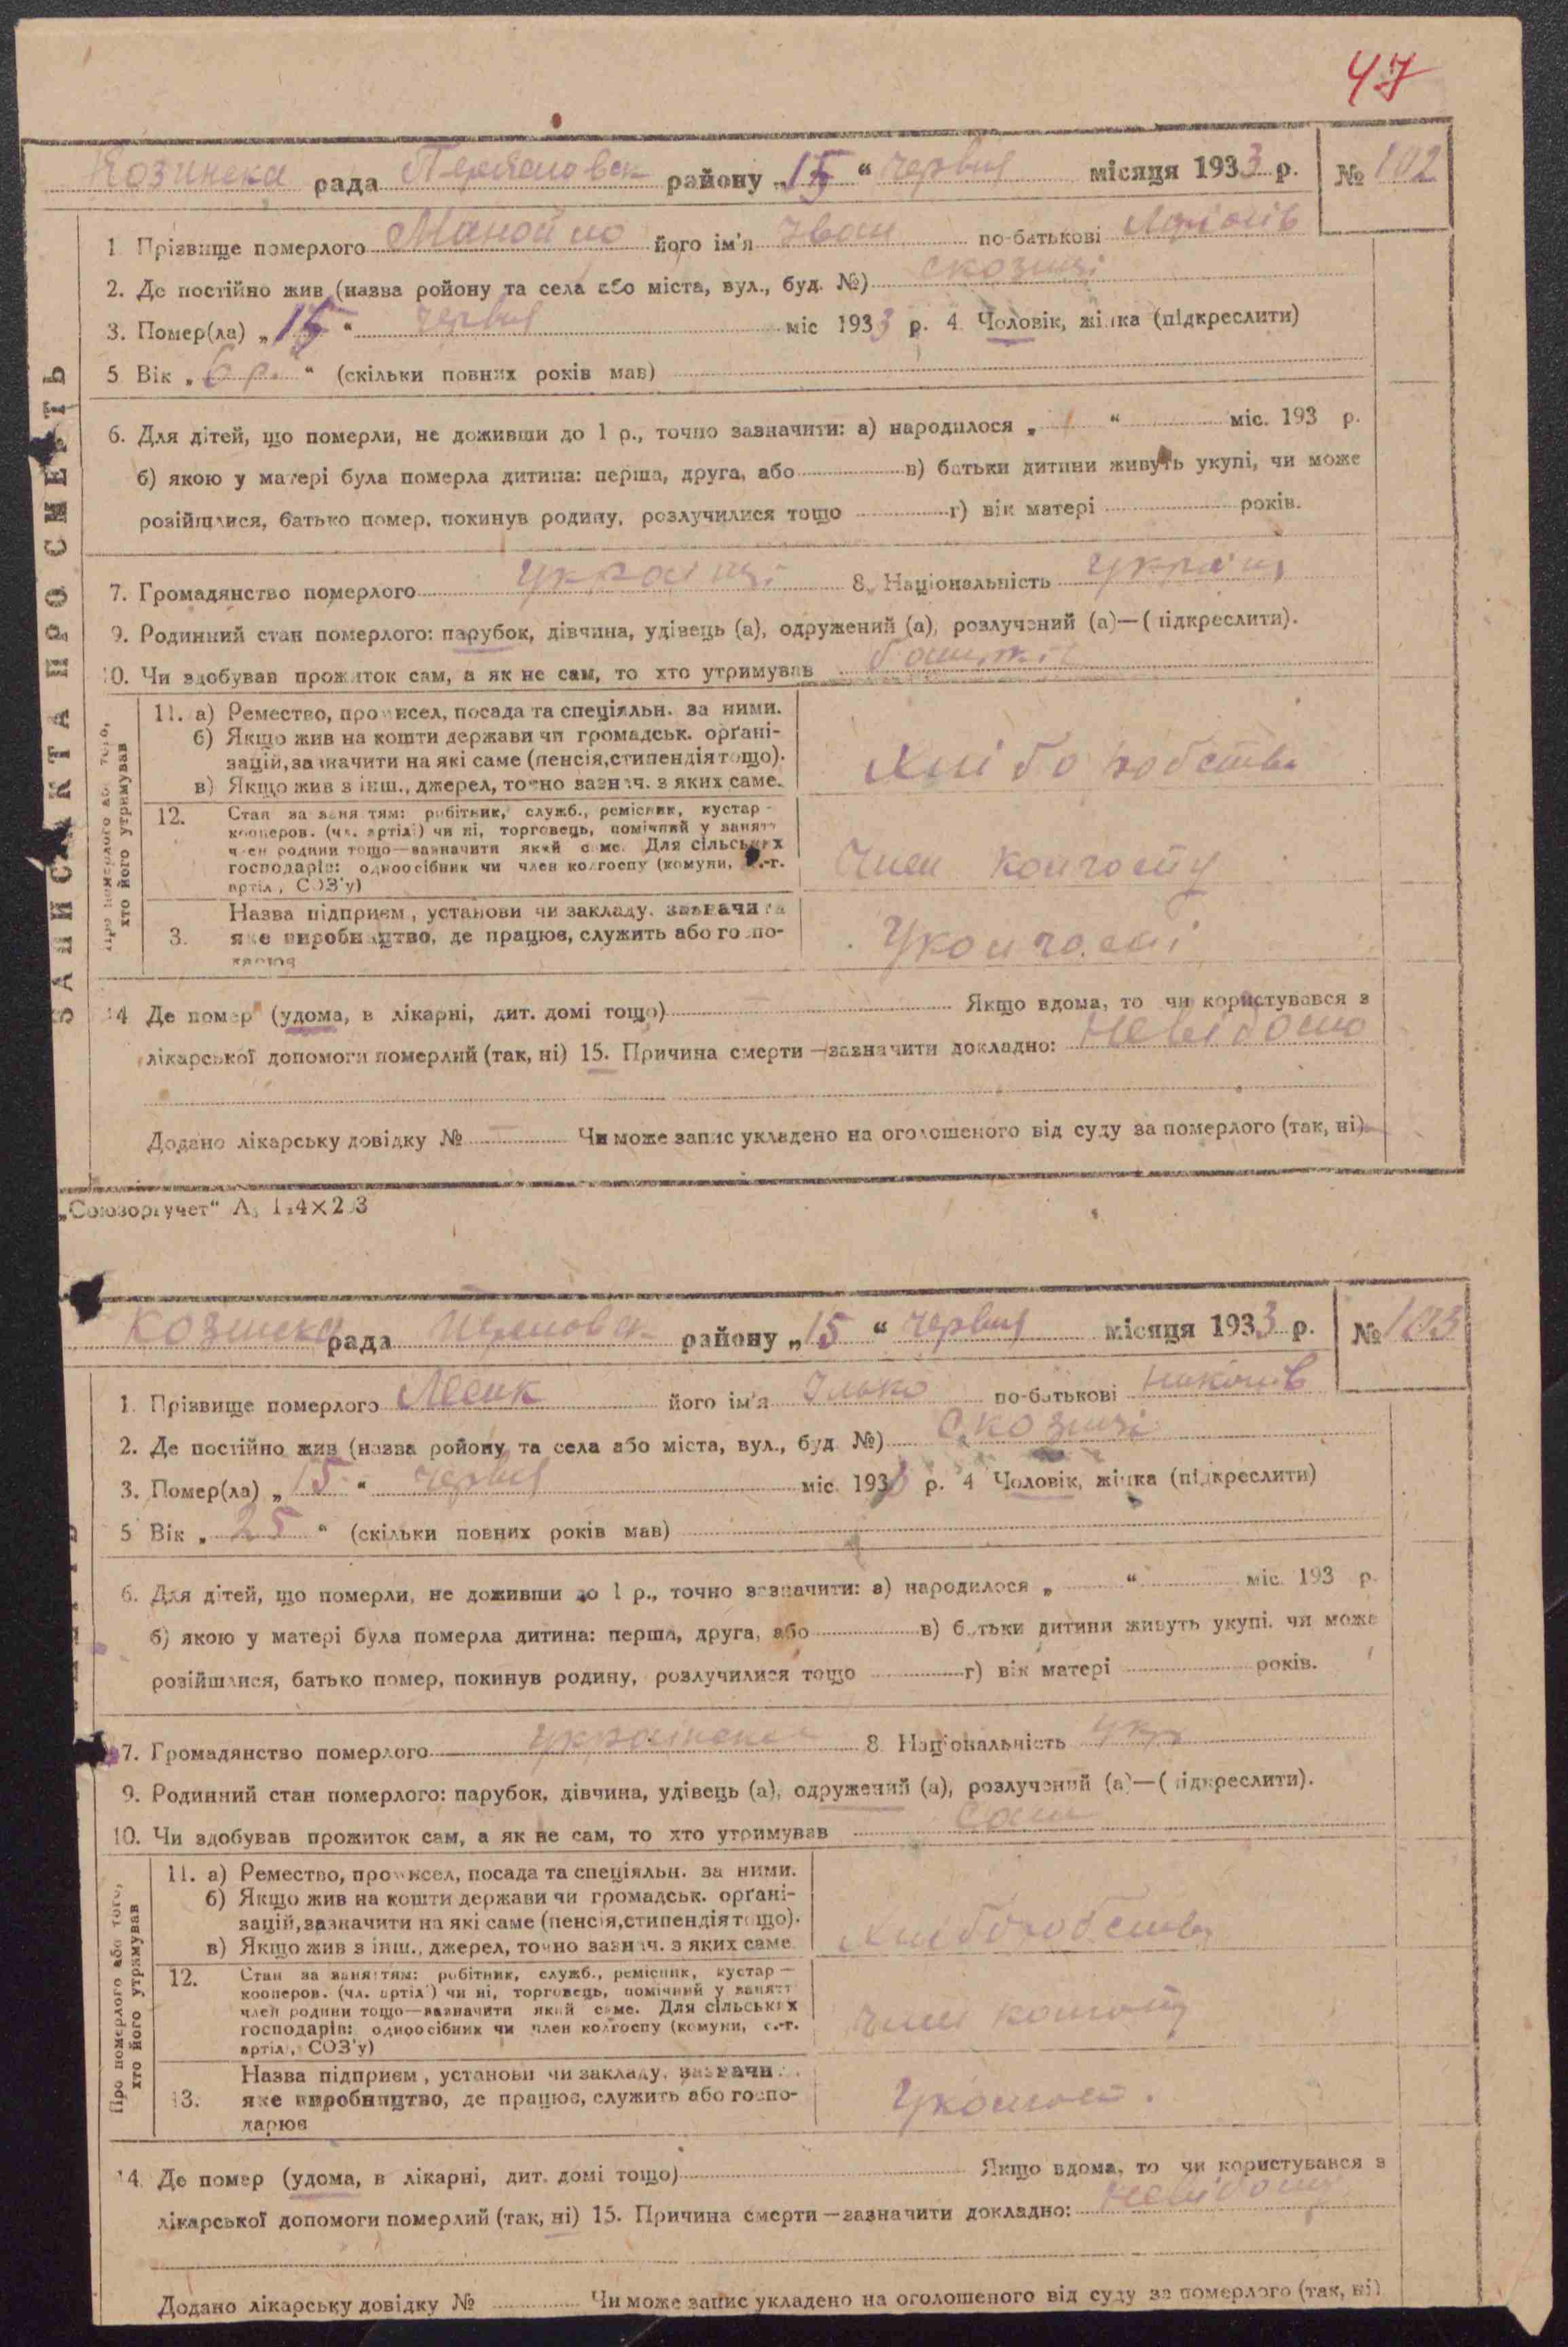 47
Козинска рада району „15“ червня місяця 1933 р. № 102
1 Прізвище померлого Манойло його ім'я Іван по-батькові
2. Де постійно жив (назва ройону та села або міста, вул., буд. №) с козинці
3. Помер(ла) „15“ червня міс 1933 р. 4. Чоловік, жінка (підкреслити)
5 Вік „6 р.“ (скільки повних років мав)
6. Для дітей, що померли, не доживши до 1 р., точно зазначити: а) народилося „ “ міс. 193 р.
б) якою у матері була померла дитина: перша, друга, або в) батьки дитини живуть укупі, чи може
розійшлися, батько помер, покинув родину, розлучилися тощо г) вік матері років.
7. Громадянство померлого 8. Національність
9. Родинний стан померлого: парубок, дівчина, удівець (а), одружений (а), розлучений (а)—(підкреслити).
10. Чи здобував прожиток сам, а як не сам, то хто утримував
ЗАПИС АКТА ПРО СМЕРТЬ
Про померлого або того,
хто його утримував
11. а) Ремество, промисел, посада та спеціяльн. за ними.
б) Якщо жив на кошти держави чи громадськ. орґані-
зацій, зазначити на які саме (пенсія, стипендія тощо).
в) Якщо жив з інш., джерел, точно зазнач. з яких саме.
Хліборобство
12. Стан за заняттям: робітник, служб., ремісник, кустар —
кооперов. (чл. артілі) чи ні, торговець, помічний у занятт
член родини тощо—зазначити який саме. Для сільських
господарів: одноосібник чи член колгоспу (комуни, с.-г.
артіл., СОЗ'у)
Член колгоспу
13. Назва підприєм., установи чи закладу, зазначити
яке виробництво, де працює, служить або госпо-
дарює
У колгоспі
14 Де помер (удома, в лікарні, дит. домі тощо) Якщо вдома, то чи користувався з
лікарської допомоги померлий (так, ні) 15. Причина смерти—зазначити докладно: Невідомо
Додано лікарську довідку № Чи може запис укладено на оголошеного від суду за померлого (так, ні)
„Союзоргучет“
Козинска рада району „15“ червня місяця 1933 р. № 103
1. Прізвище померлого Лесик його ім'я Ілько по-батькові
2. Де постійно жив (назва ройону та села або міста, вул., буд №) с. козинці
3. Помер(ла) „15“ червня міс. 1933 р. 4 Чоловік, жінка (підкреслити)
5 Вік „25“ (скільки повних років мав)
6. Для дітей, що померли, не доживши до 1 р., точно зазначити: а) народилося „ “ міс. 193 р.
б) якою у матері була померла дитина: перша, друга, або в) батьки дитини живуть укупі, чи може
розійшлися, батько помер, покинув родину, розлучилися тощо г) вік матері років.
7. Громадянство померлого 8. Національність укр
9. Родинний стан померлого: парубок, дівчина, удівець (а), одружений (а), розлучений (а)—(підкреслити).
10. Чи здобував прожиток сам, а як не сам, то хто утримував сам
Про померлого або того,
хто його утримував
11. а) Ремество, промисел, посада та спеціяльн. за ними.
б) Якщо жив на кошти держави чи громадськ. орґані-
зацій, зазначити на які саме (пенсія, стипендія тощо).
в) Якщо жив з інш., джерел, точно зазнач. з яких саме
Хліборобство
12. Стан за заняттям: робітник, служб., ремісник, кустар —
кооперов. (чл. артіл) чи ні, торговець, помічний у занятт
член родини тощо—зазначити який саме. Для сільських
господарів: одноосібник чи член колгоспу (комуни, с.-г.
артіл., СОЗ'у)
Член колгоспу
13. Назва підприєм., установи чи закладу, зазначи
яке виробництво, де працює, служить або госпо-
дарює
У колгоспі.
14. Де помер (удома, в лікарні, дит. домі тощо) Якщо вдома, то чи користувався з
лікарської допомоги померлий (так, ні) 15. Причина смерти—зазначити докладно: Невідомо
Додано лікарську довідку № Чи може запис укладено на оголошеного від суду за померлого (так, ні)